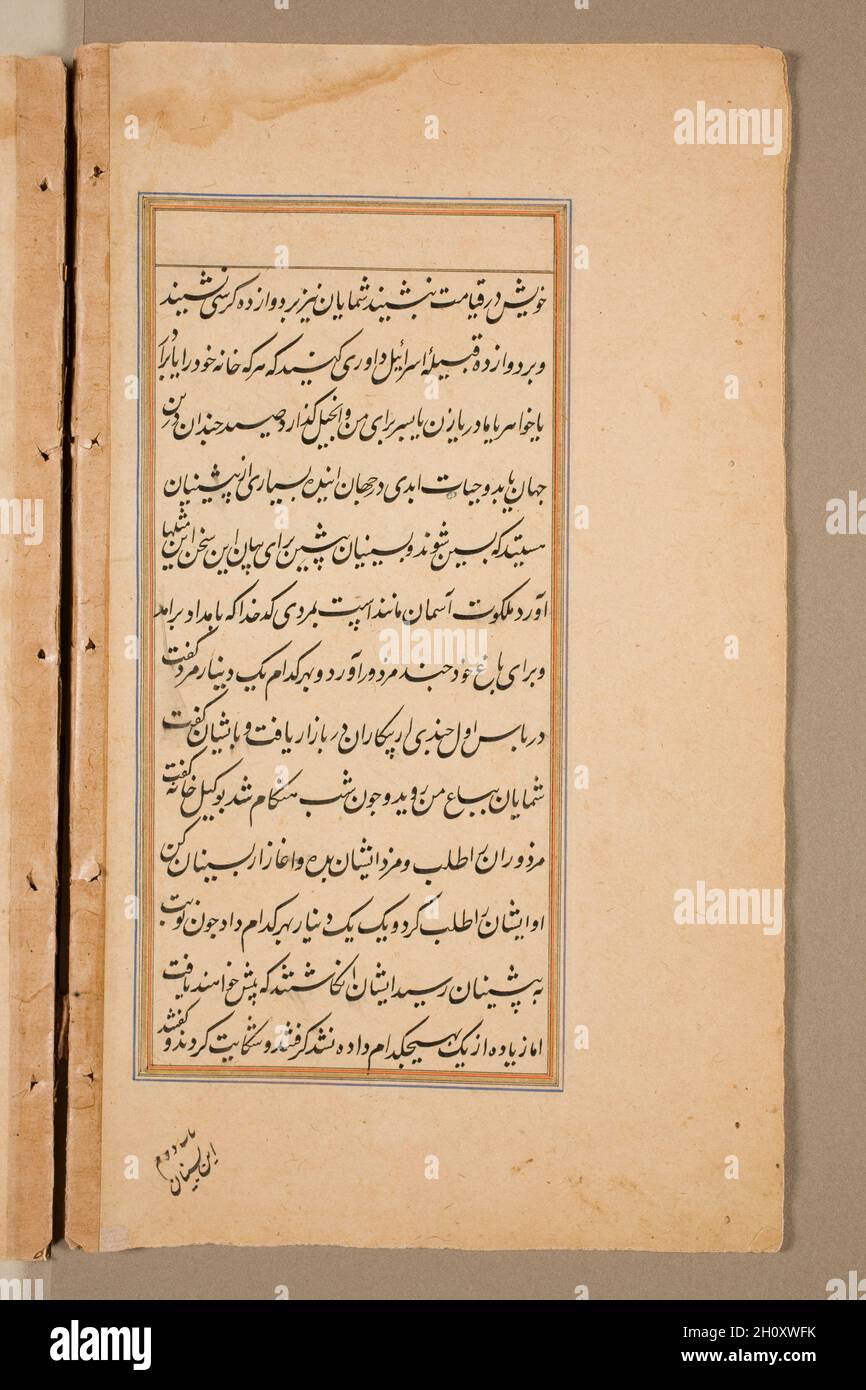 خویش در قیامت بنشیند شمایان نیز بر دوازده کرسی نشیند
و بر دوازده قبیلهٔ اسرائیل داوری کنید که هر که خانه خود را یا برادر
یا خواهر یا مادر یا زن یا پسر برای من و انجیل گذارد صد چندان درین
جهان یابد و حیات ابدی در جهان آینده بسیاری از پیشینیان
هستند که پسین شوند و پسینیان پیشین برای بیان این سخن این مثلها
آورد ملکوت آسمان مانند است بمردی کدخدا که بامداد برامد
و برای باغ خود چند مزدور آورد و بهر کدام یک دینار مزد گفت
در پاس اول چندی از بیکاران در بازار یافت و باایشان گفت
شمایان بباغ من روید و چون شب هنگام شد بوکیل خانه گفت
مزدوران را طلب و مزد ایشان بده و اغاز از پسینان کن
او ایشان را طلب کرد و یک یک دینار بهر کدام داد چون نوبت
به پیشینان رسید ایشان انگاشتند که بیش خواهند یافت
اما زیاده از یک بهیچکدام داده نشد گرفتند و شکایت کردند و گفتند
این پسینان
a
alamy
Image ID: 2H0XWFK
www.alamy.com